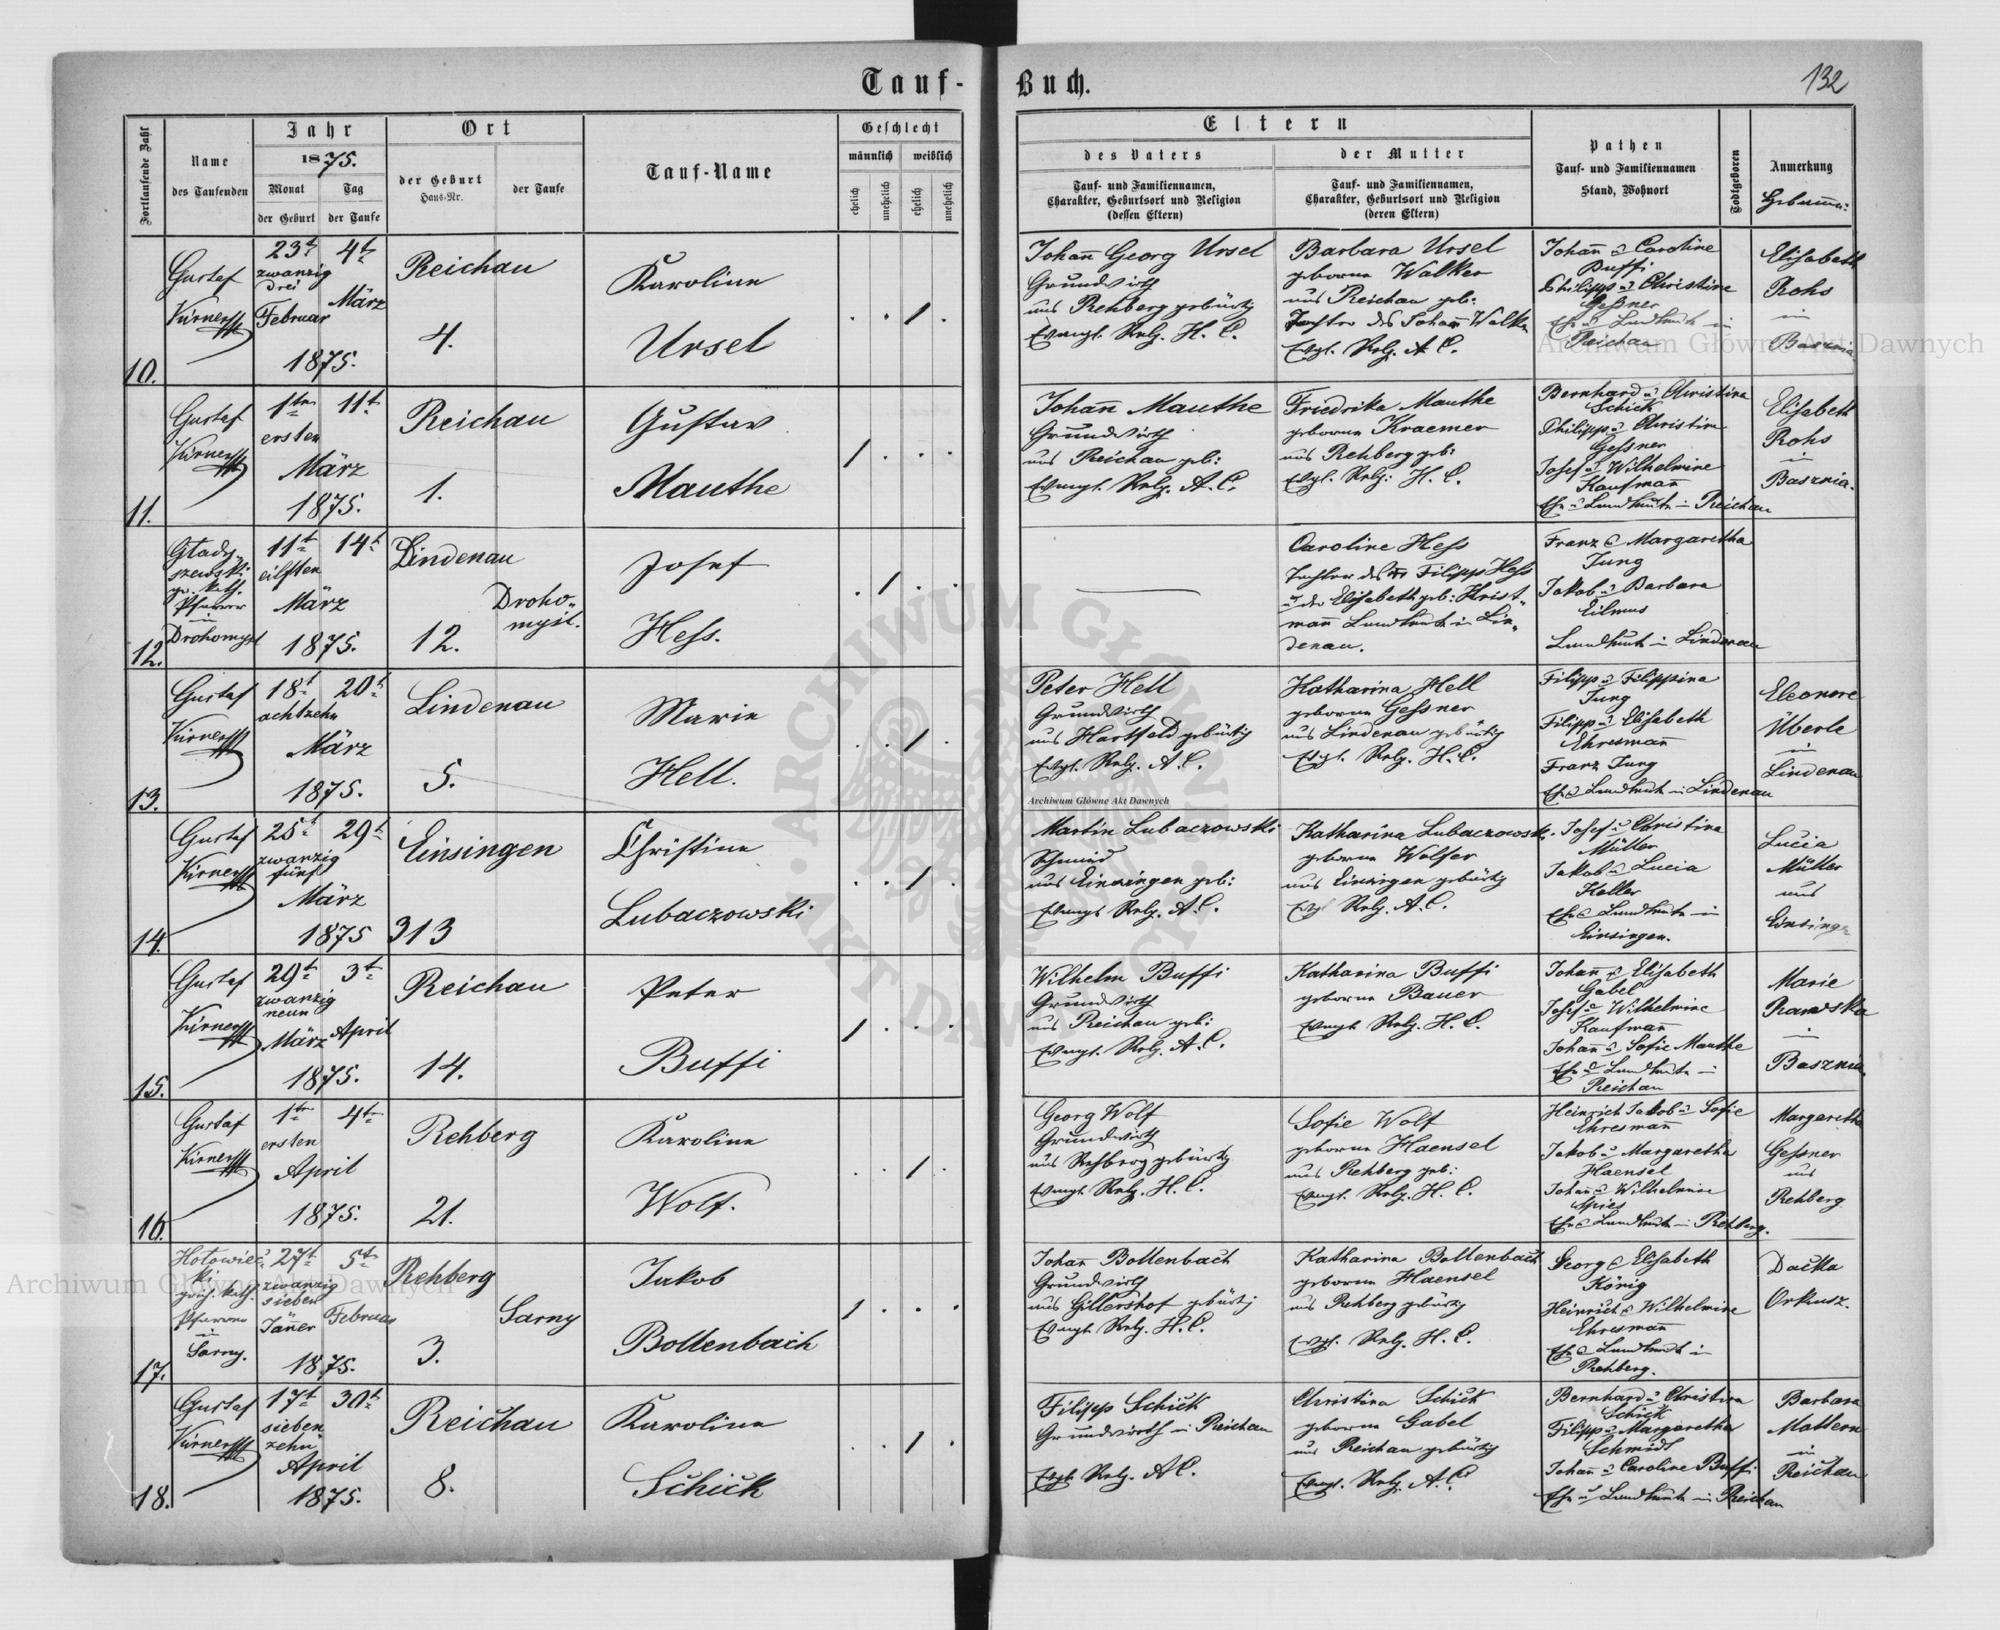 Tauf-Buch.
132
Fortlaufende Zahl
Name
des Taufenden
Jahr
1875.
Monat
der Geburt
Tag
der Taufe
Ort
der Geburt
Haus-Nr.
der Taufe
Tauf-Name
Geschlecht
männlich
weiblich
ehelich
unehelich
ehelich
unehelich
Eltern
des Vaters
Tauf- und Familiennamen,
Charakter, Geburtsort und Religion
(dessen Eltern)
der Mutter
Tauf- und Familiennamen,
Charakter, Geburtsort und Religion
(deren Eltern)
Pathen
Tauf- und Familiennamen
Stand, Wohnort
Todtgeboren
Anmerkung
10.
Gustaf
23t 4t
zwanzig
drei
Februar
März
1875.
Reichau
4.
Karoline
Ursel
Johañ Georg Ursel
Grundwirth
aus Rehberg gebürtig
Evangl. Relg. H. C.
Barbara Ursel
geborne Walker
aus Reichau geb:
Tochter des Johañ Walker
Evgl. Relg. A. C.
Johañ u Caroline
Buffi
Philipp u Christine
Gessner
Reichau
Elisabeth
Rohs
in
Basznia
11.
Gustaf
1ten 11t
ersten
März
1875.
Reichau
1.
Gustav
Mauthe
Johañ Mauthe
Grundwirth
aus Reichau geb:
Evangl. Relg. A. C.
Friedrika Mauthe
geborne Kraemer
aus Rehberg geb:
Evgl. Relg: H. C.
Bernhard u Christina
Schick
Philipp u Christine
Gessner
Josef u Wilhelmine
Kaufmañ
Elisabeth
Rohs
in
Basznia.
12.
Glady-
szewski
gr. kath.
Pfarrer
in
Drohomysl
11t 14t
eilften
März
1875.
Lindenau
12.
Droho-
mysl.
Josef
Hess.
Caroline Hess
Tochter des Filipp Hess
u der Elisabeth geb: Krist-
mañ Landleute in Lin-
denau.
Franz u Margaretha
Jung
Jakob u Barbara
Eilmus
Landleute in Lindenau
13.
Gustaf
18t 20t
achtzehn
März
1875.
Lindenau
5.
Marie
Hell.
Peter Hell
Grundwirth
aus Hartfeld gebürtig
Evgl. Relg. A. C.
Katharina Hell
geborne Gessner
aus Lindenau gebürtig
Evgl. Relg. H. C.
Filipp u Filippina
Jung
Filipp u Elisabeth
Ehresmañ
Franz Jung
Eleonore
Überle
in
Lindenau
14.
Gustaf
25t 29t
zwanzig
fünf
März
1875
Einsingen
313
Christine
Lubaczowski
Martin Lubaczowski
Schmied
aus Einsingen geb:
Evangl. Relg. A. C.
Katharina Lubaczowski
geborne Wolfer
aus Einsingen gebürtig
Evgl Relg. A. C.
Josef u Christina
Müller
Jakob u Lucia
Keller
Einsingen.
Lucia
Müller
aus
Einsingen
15.
Gustaf
29t 3t
zwanzig
neun
März April
1875.
Reichau
14.
Peter
Buffi
Wilhelm Buffi
Grundwirth
aus Reichau geb:
Evangl. Relg. A. C.
Katharina Buffi
geborne Bauer
Evangl. Relg. H. C.
Johañ u Elisabeth
Gabel
Josef u Wilhelmine
Kaufmañ
Johañ u Sofie Mauthe
Reichau
Marie
in
Basznia.
16.
Gustaf
1ten 4ten
ersten
April
1875.
Rehberg
21.
Karoline
Wolf.
Georg Wolf
Grundwirth
aus Rehberg gebürtig
Evangl. Relg. H. C.
Sofie Wolf
geborne Haensel
aus Rehberg geb:
Evangl. Relg. H. C.
Heinrich Jakob u Sofie
Ehresmañ
Jakob u Margaretha
Haensel
Johañ u Wilhelmine
Spies
Margaretha
Gessner
aus
Rehberg
17.
Hotowiec-
ki
griech. kath.
Pfarrer
in
Sarny.
27t 5ten
zwanzig
sieben
Jäñer
Februar
1875.
Rehberg
3.
Sarny
Jakob
Bollenbach
Johañ Bollenbach
Grundwirth
aus Gillershof gebürtig
Evangl. Relg. H. C.
Katharina Bollenbach
geborne Haensel
aus Rehberg gebürtig
Evgl. Relg. H. C.
Georg u Elisabeth
König
Heinrich u Wilhelmine
Ehresmañ
Rehberg.
18.
Gustaf
17t 30t
sieben
zehn
April
1875.
Reichau
8.
Karoline
Schick
Filipp Schick
Grundwirth in Reichau
Evgl. Relg. A C.
Christina Schick
geborne Gabel
aus Reichau gebürtig
Evangl. Relg. A. C.
Bernhard u Christina
Schick
Filipp u Margaretha
Schmidt
Johañ u Caroline Buffi
Barbara
Mattern
in
Reichau
Archiwum Główne Akt Dawnych
ARCHIWUM GŁÓWNE AKT DAWNYCH